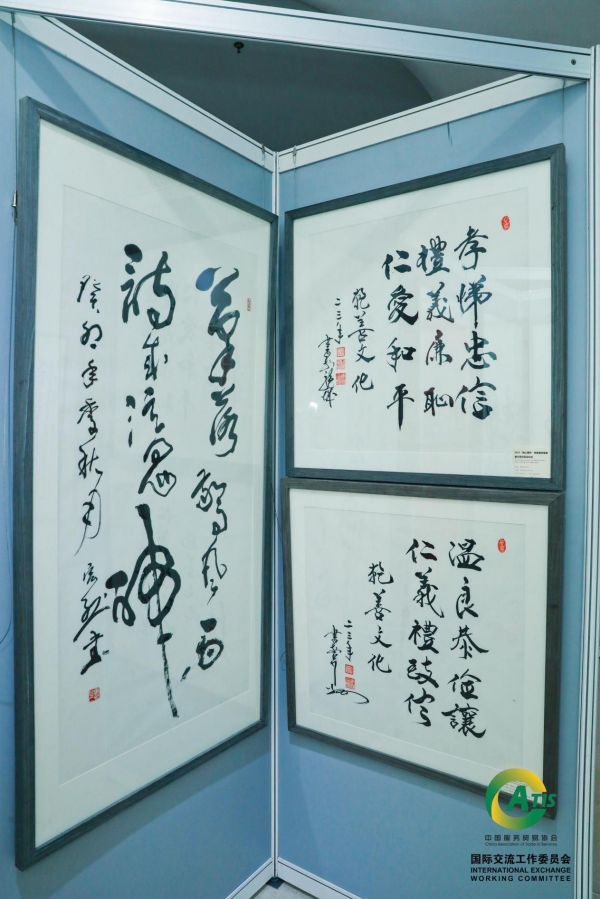 筆落驚风雨
詩成泣鬼神
癸卯年季秋月
書
孝悌忠信
禮義廉耻
仁愛和平
善文化
温良恭俭讓
仁義禮智信
善文化
CATIS
中国服务贸易协会
China Association of Trade in Services
国际交流工作委员会
INTERNATIONAL EXCHANGE
WORKING COMMITTEE